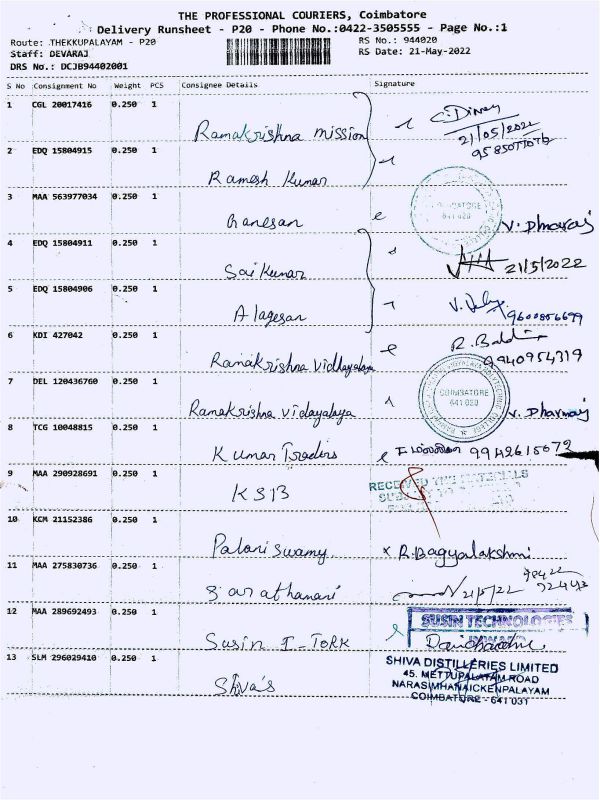 THE PROFESSIONAL COURIERS, Coimbatore
Delivery Runsheet - P20 - Phone No.:0422-3505555 - Page No.:1
Route: THEKKUPALAYAM - P20 RS No.: 944020
Staff: DEVARAJ RS Date: 21-May-2022
DRS No.: DCJB94402001
S No Consignment No Weight PCS Consignee Details Signature
1 CGL 20017416 0.250 1
Ramakrishna mission
21/05/2022
2 EDQ 15804915 0.250 1
Ramesh Kumar
3 MAA 563977034 0.250 1
COIMBATORE
641 020
Ganesan V. Dharmaraj
4 EDQ 15804911 0.250 1
Sai Kumar 21/5/2022
5 EDQ 15804906 0.250 1
Alagesan 9600856699
6 KDI 427042 0.250 1
Ramakrishna vidhyalaya 9940954319
7 DEL 120436760 0.250 1
COIMBATORE
641 020
Ramakrishna vidayalaya V. Dharmaraj
8 TCG 10048815 0.250 1
Kumar Traders
9 MAA 290928691 0.250 1
RECEIVED THE MATERIALS
KSB
10 KCM 21152386 0.250 1
Palani Swamy R. Bagyalakshmi
11 MAA 275830736 0.250 1
21/5/22
12 MAA 289692493 0.250 1
SUSIN TECHNOLOGIES
INWARD
Susin I-TORK
13 SLM 296029410 0.250 1
SHIVA DISTILLERIES LIMITED
45. METTUPALAYAM ROAD
NARASIMHANAICKENPALAYAM
COIMBATORE - 641 031
Shiva's